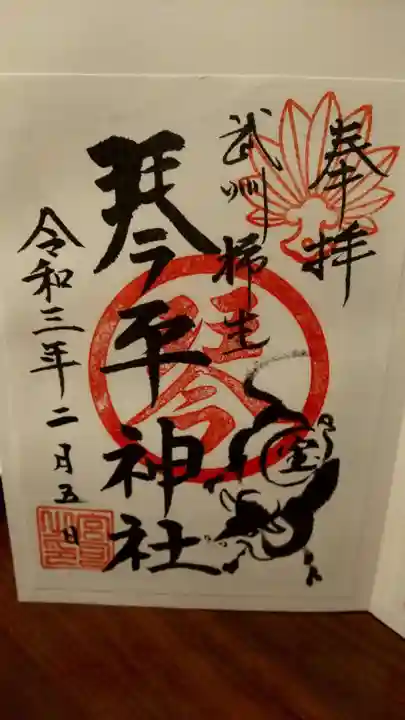 奉拝
武州柿生
琴平神社
令和三年二月五日
琴
金